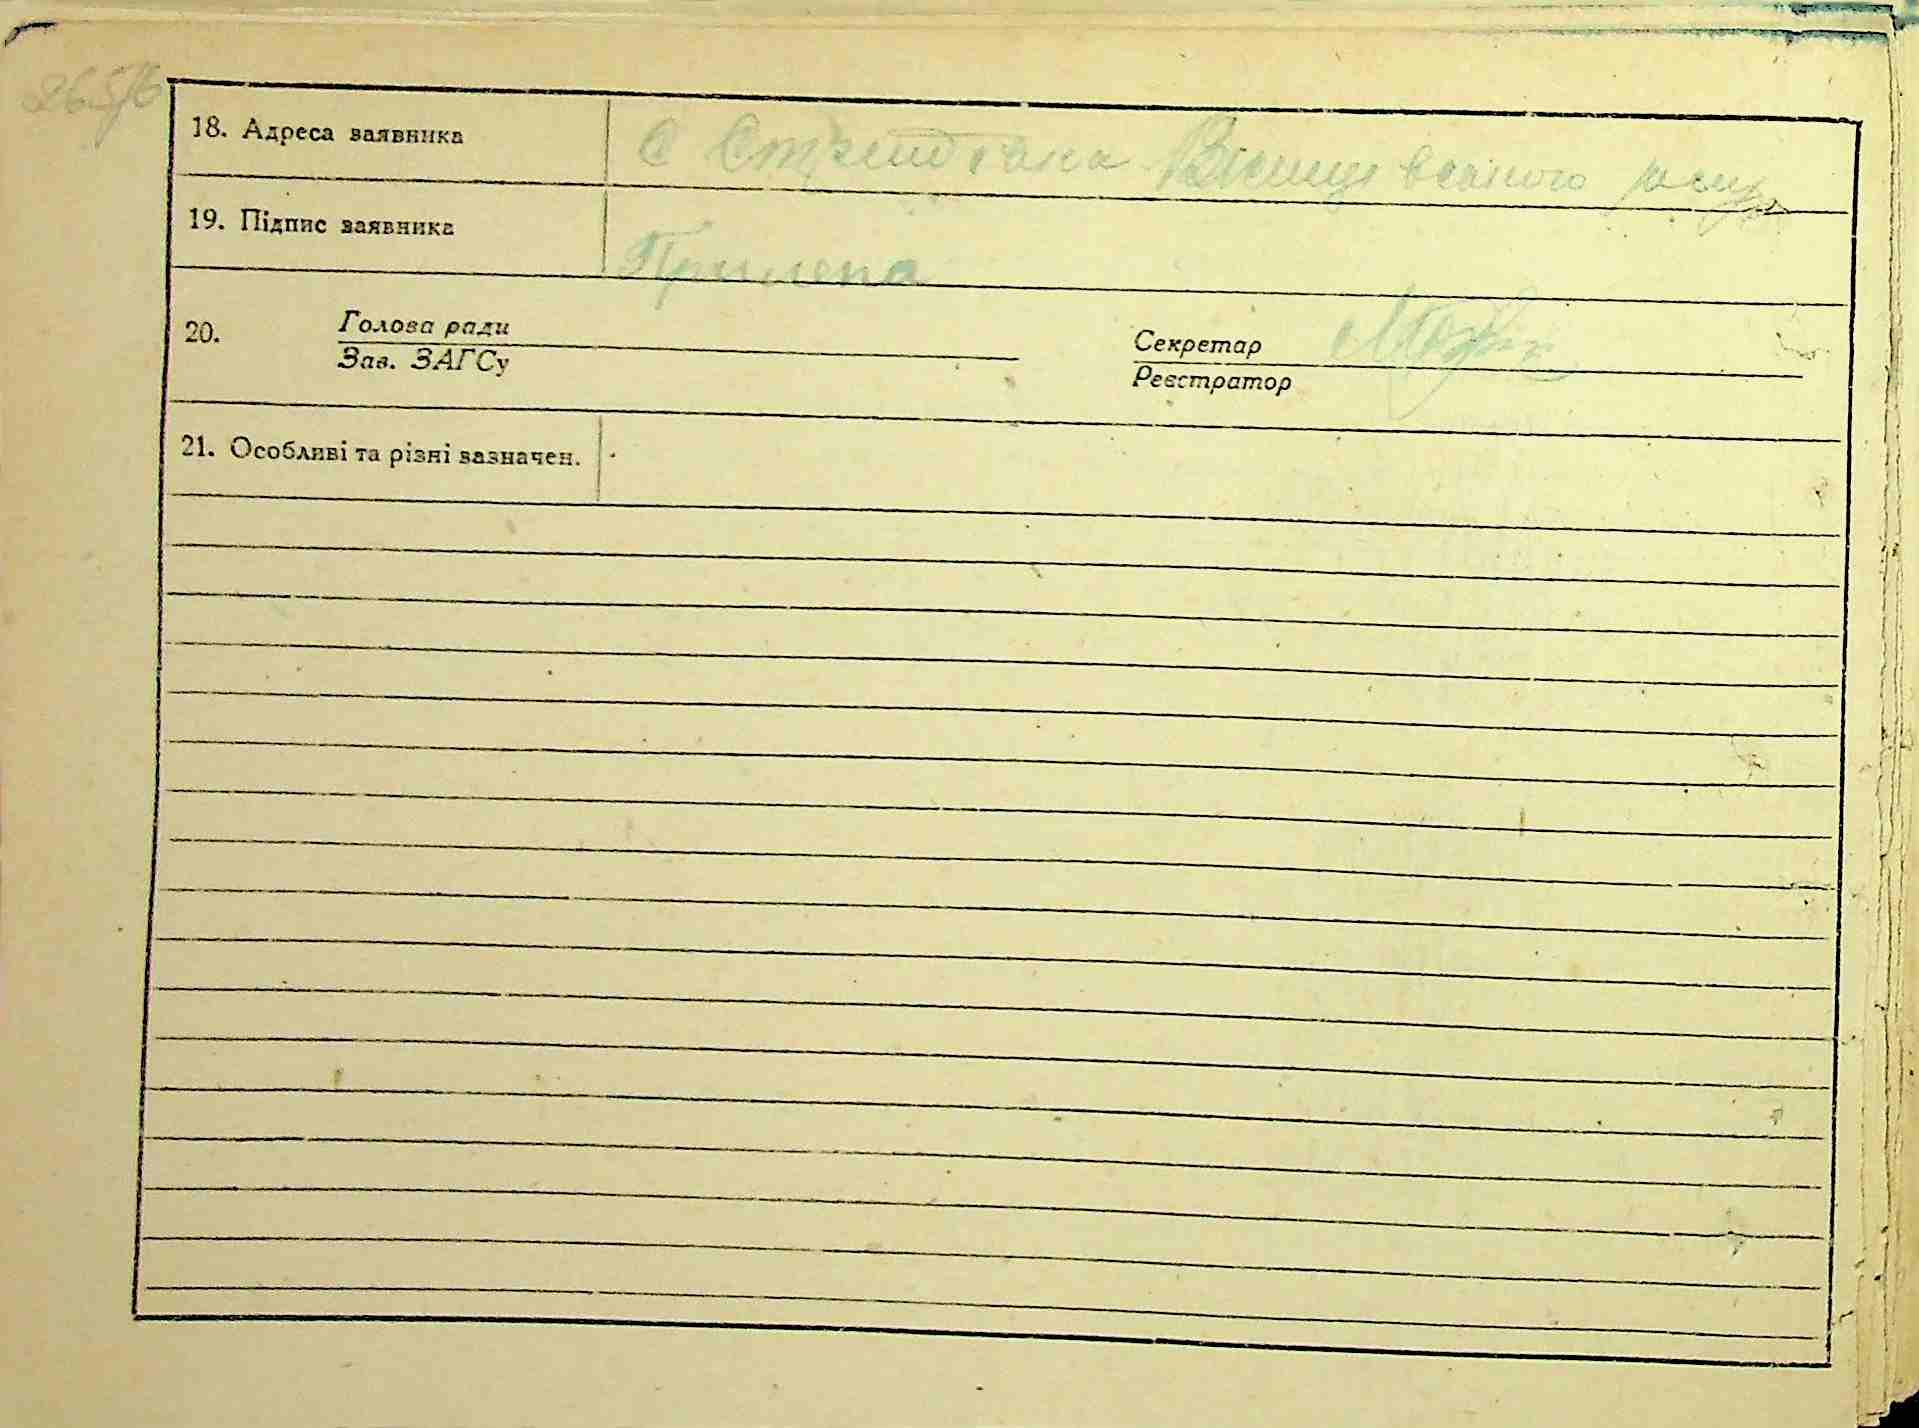 18. Адреса заявника С Стрижавка Вінницького району
19. Підпис заявника Прилепа
20. Голова ради Секретар
Зав. ЗАГСу Реєстратор
21. Особливі та різні зазначен.